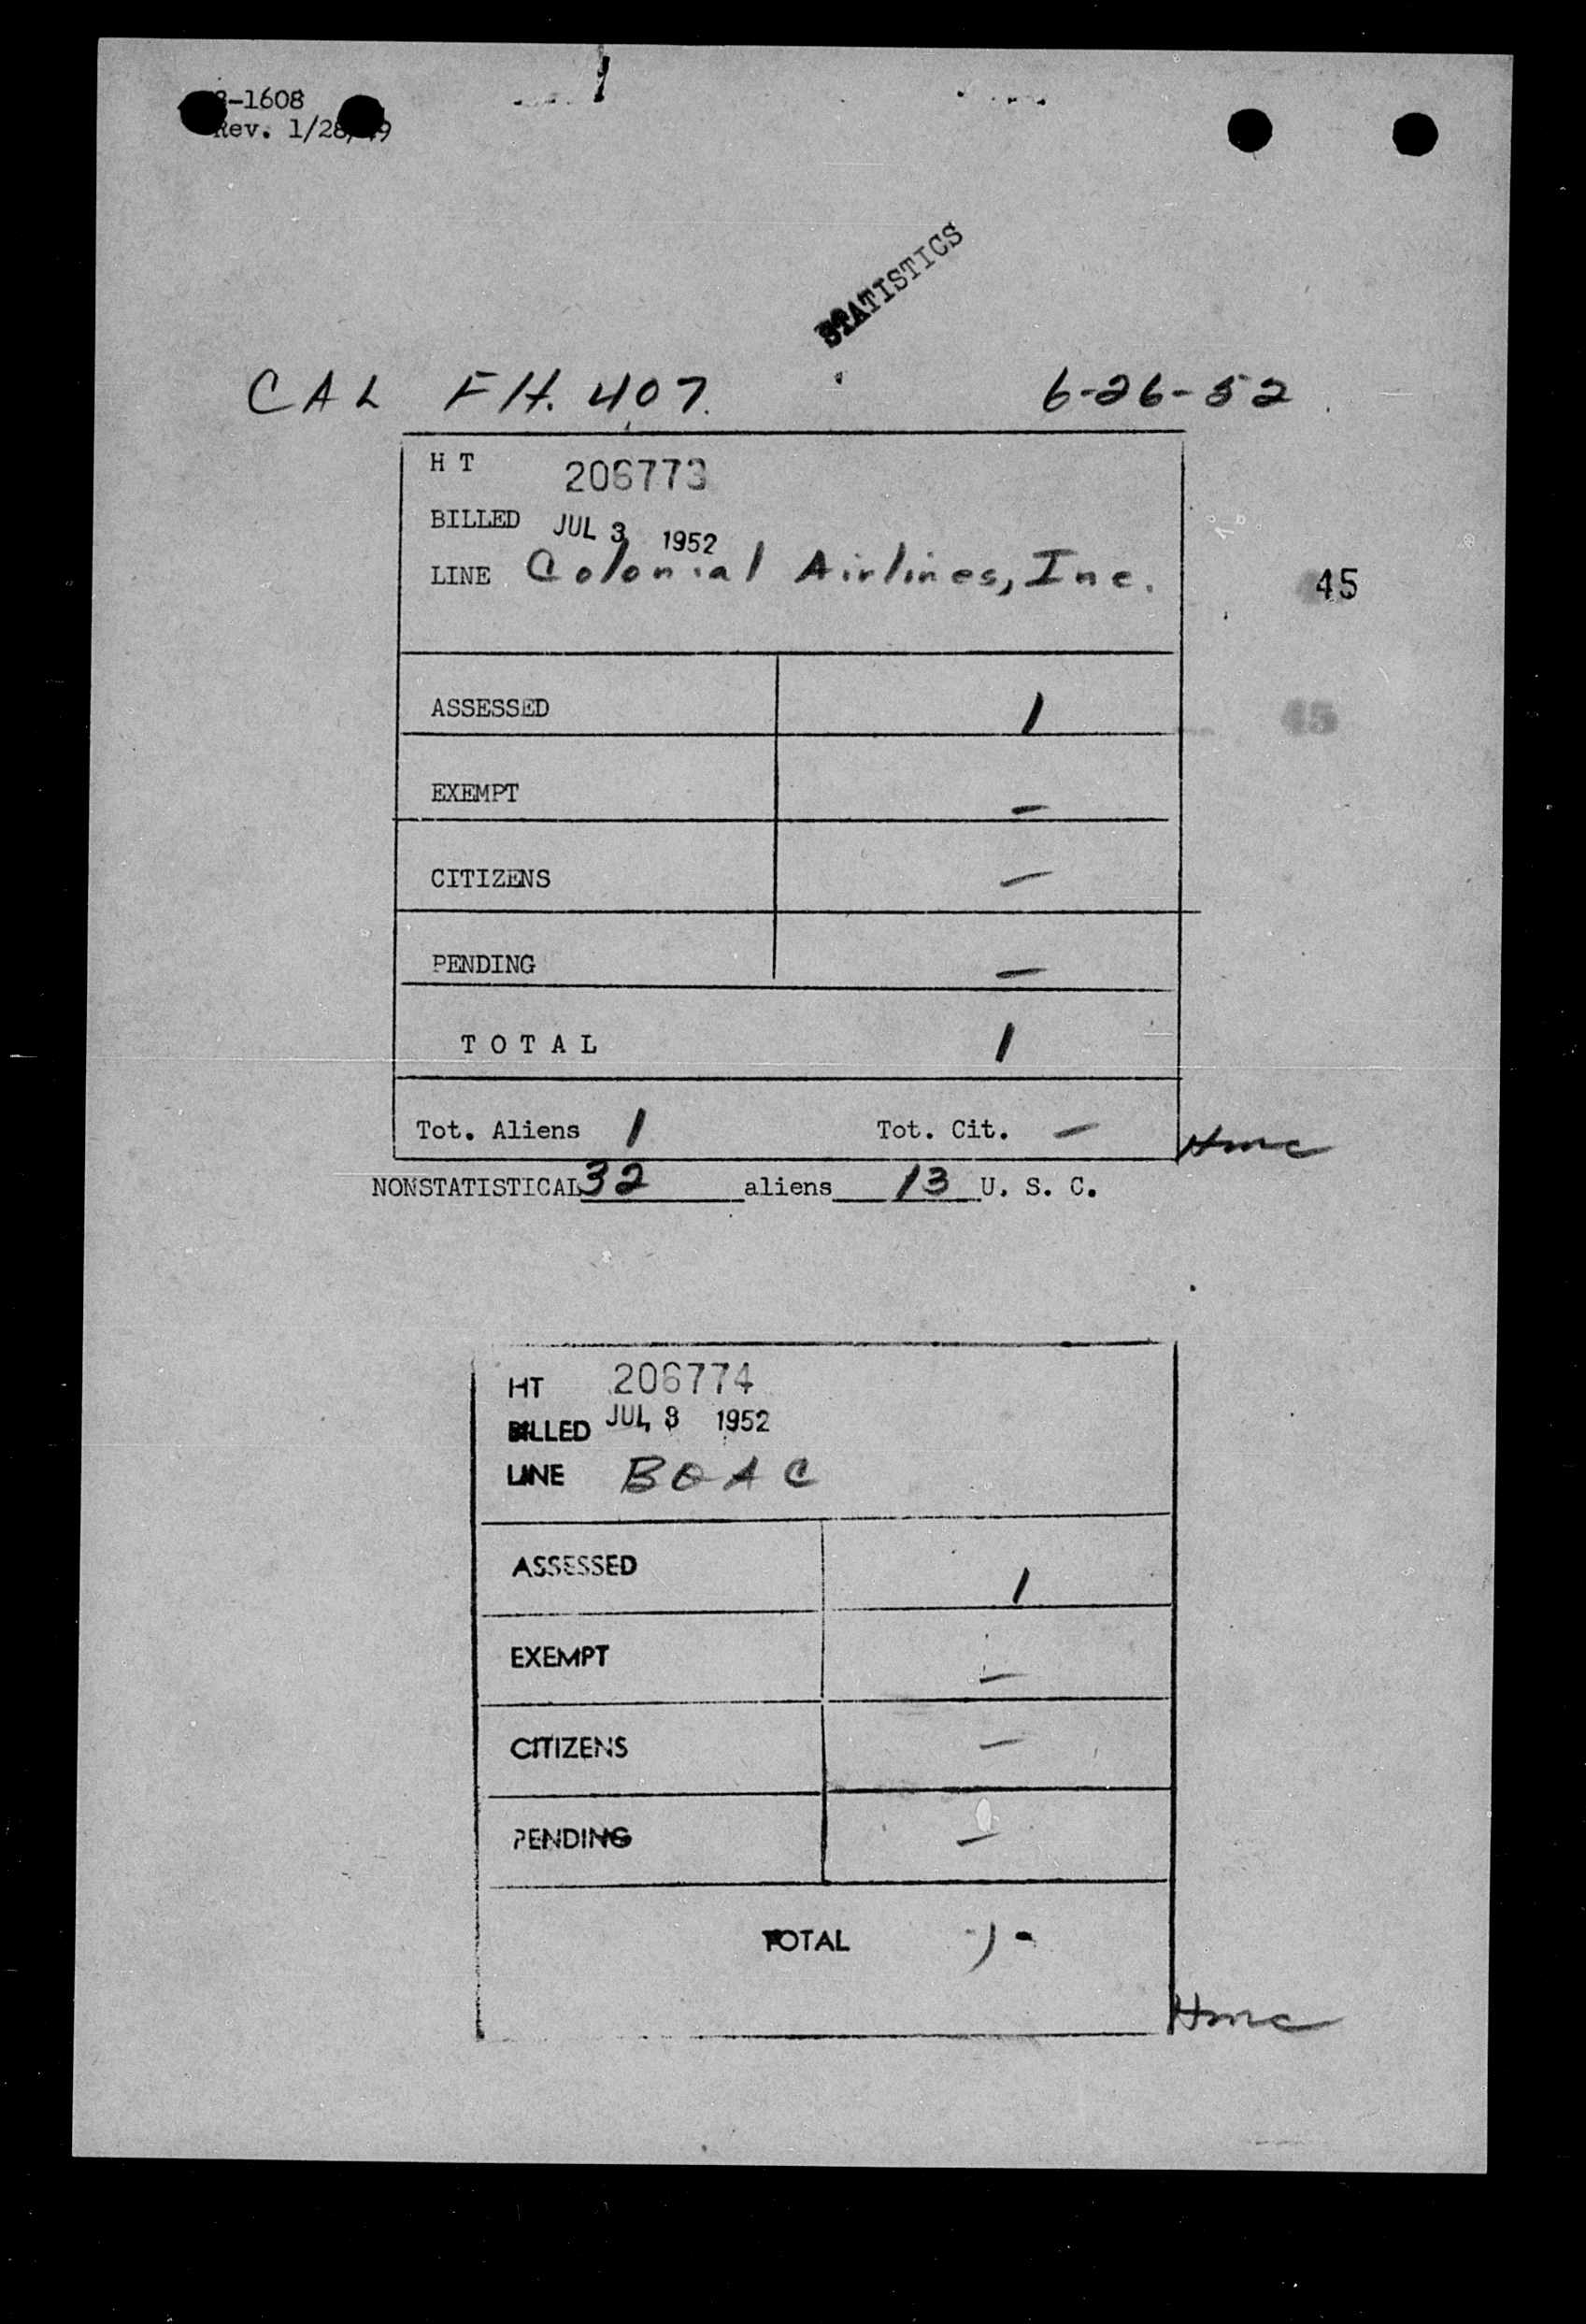 -1608
Rev. 1/28/49
STATISTICS
CAL FH. 407. 6-26-52
H T 206773
BILLED JUL 3 1952
LINE Colonial Airlines, Inc.
45
ASSESSED 1
45
EXEMPT -
CITIZENS -
PENDING -
T O T A L 1
Tot. Aliens 1 Tot. Cit. -
Hmc
NONSTATISTICAL 32 aliens 13 U. S. C.
HT 206774
BILLED JUL 3 1952
LINE BOAC
ASSESSED 1
EXEMPT -
CITIZENS -
PENDING -
TOTAL 1 -
Hmc